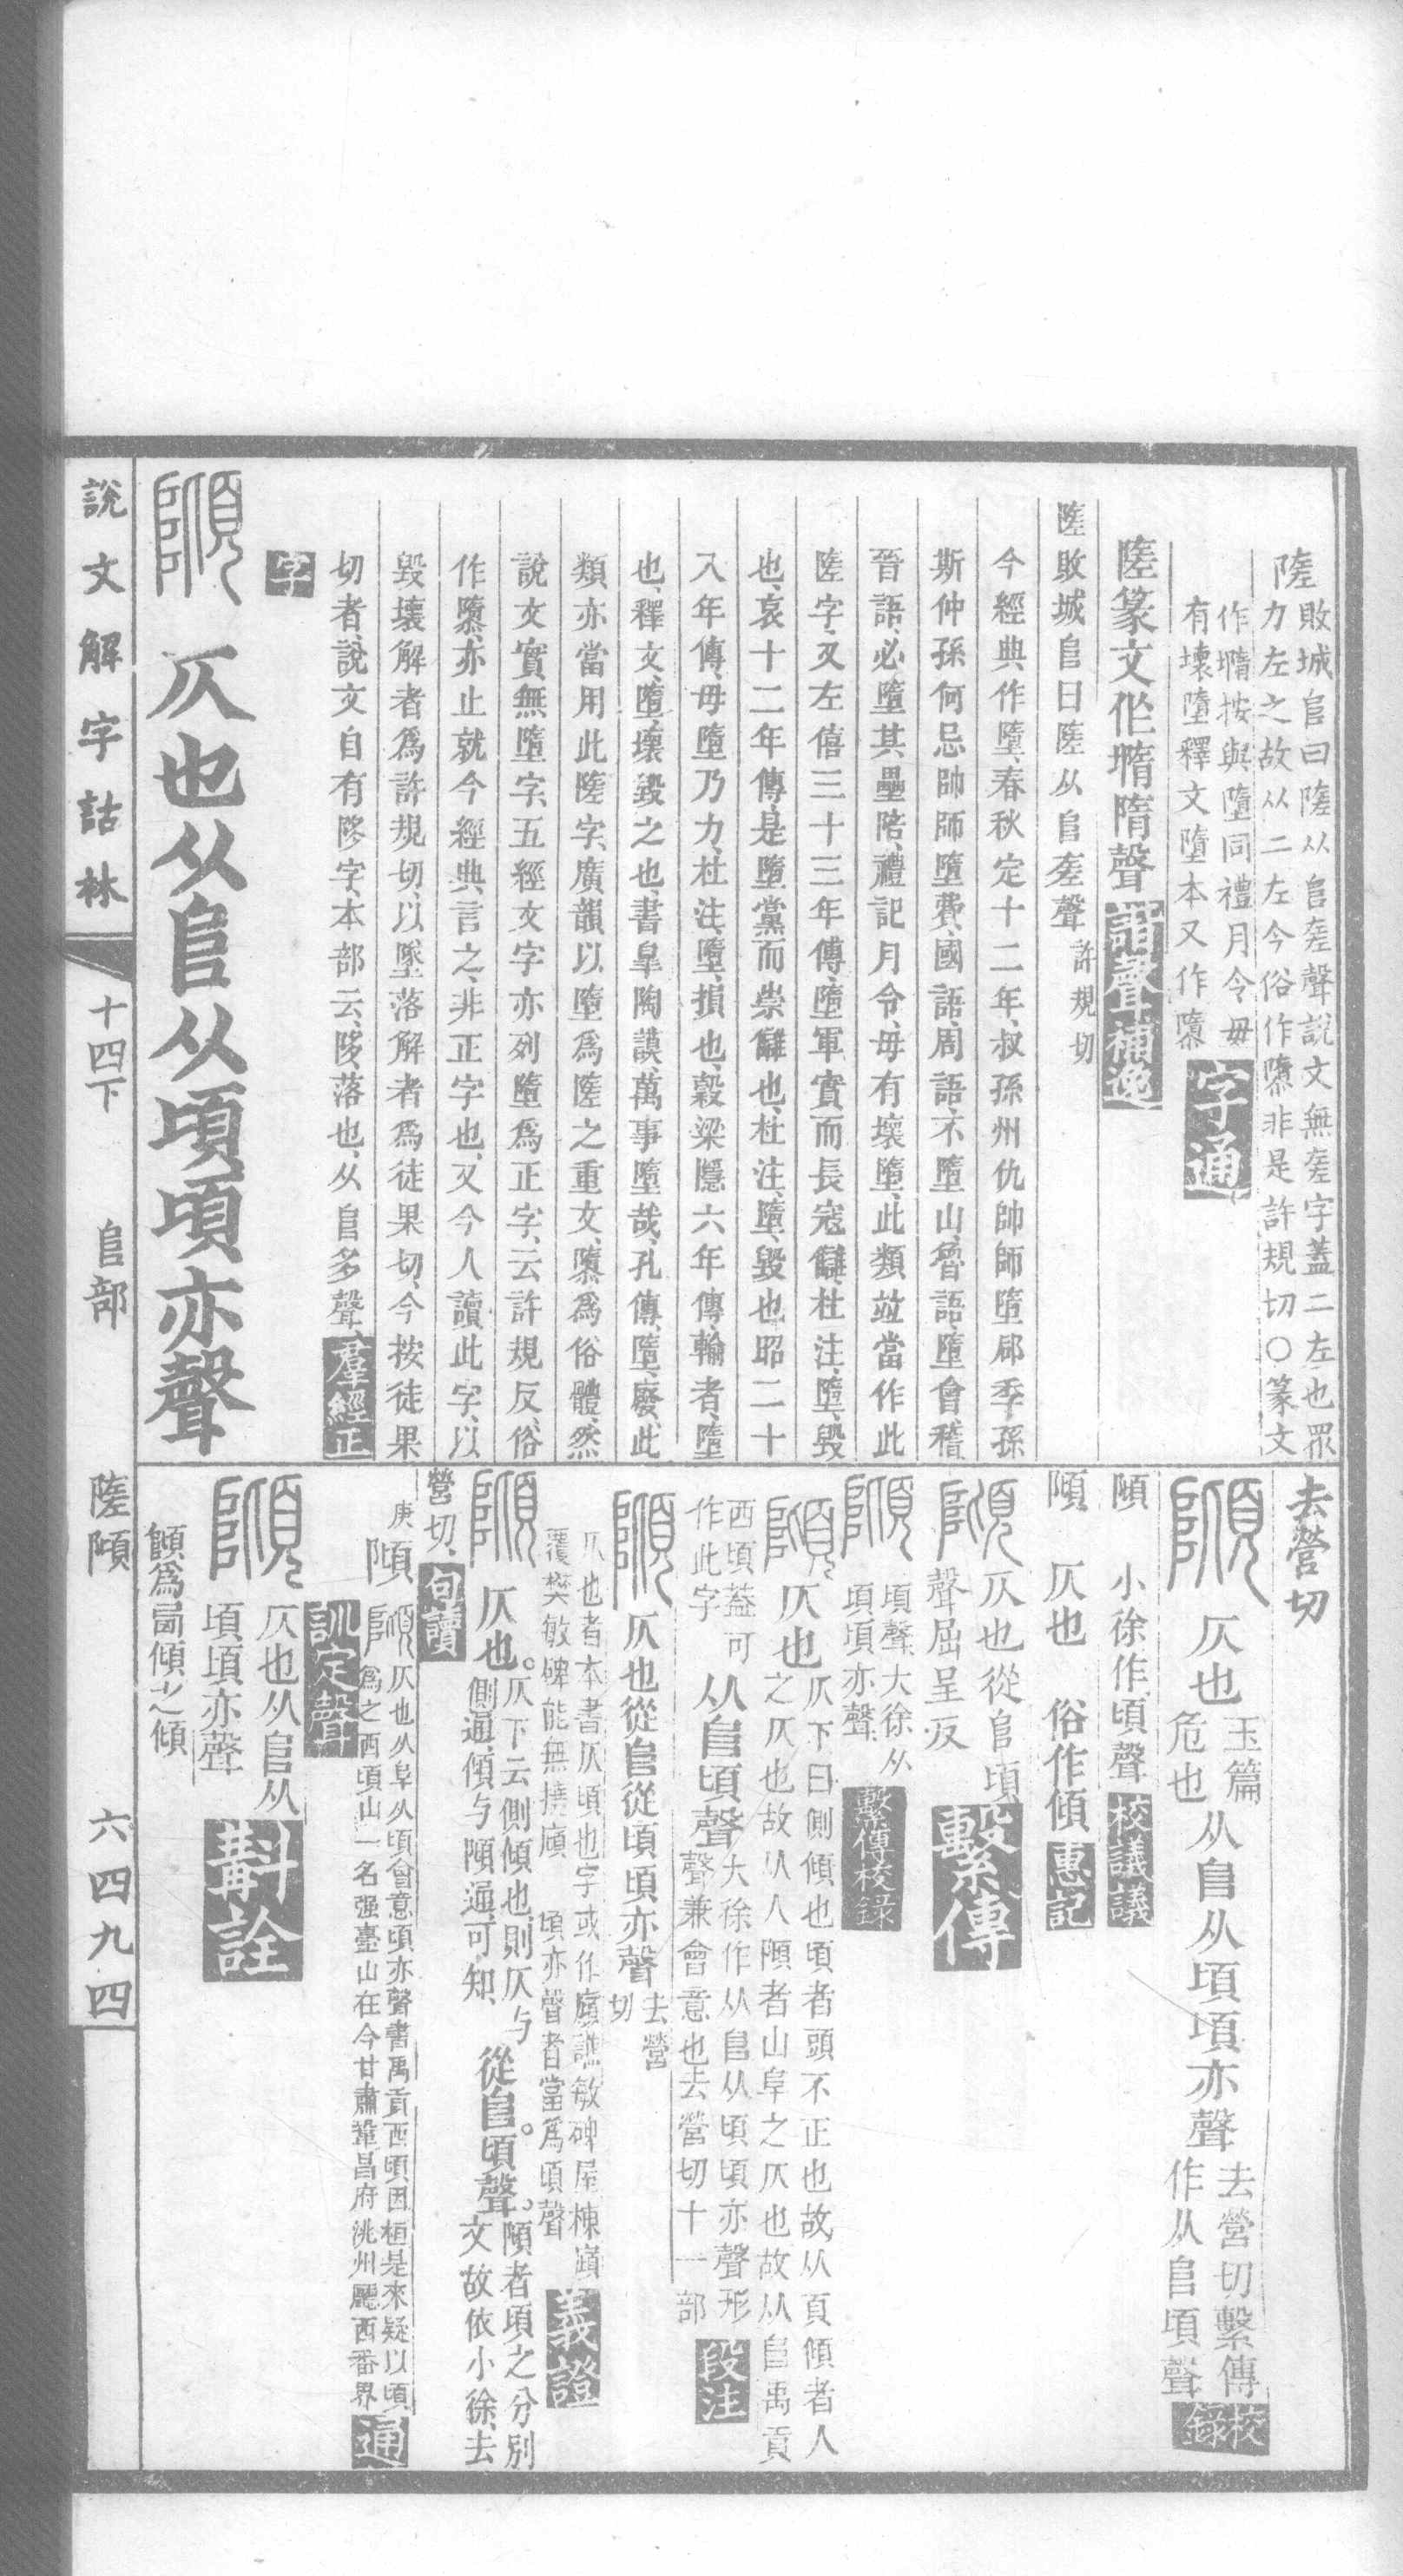 隓
敗城𨸏曰隓从𨸏㒳聲說文無㒳字蓋二左也眾
力左之故从二左今俗作隳非是許規切○篆文
作墮按與墮同禮月令毋
有壞墮釋文墮本又作隳
字通
隓篆文作墮隋聲
諧聲補逸
隓敗城𨸏曰隓从𨸏差聲許規切
今經典作墮、春秋定十二年、叔孫州仇帥師墮郈、季孫
斯仲孫何忌帥師墮費、國語、周語、不墮山、魯語、墮會、稽
晉語、必墮其壘陪、禮記月令、毋有壞墮、此類竝當作此
隓字、又左僖三十三年傳、墮軍實而長寇讎、杜注、墮、毀
也、哀十二年傳、是墮黨而崇讎也、杜注、墮、毀也昭二十
八年傳、毋墮乃力、杜注、墮、損也、穀梁隱六年傳、輸者、墮
也、釋文、墮、壞毀之也、書皐陶謨、萬事墮哉、孔傳、墮、廢、此
類亦當用此隓字、廣韻以墮爲隓之重文、隳爲俗體、然
說文實無墮字、五經文字亦列墮爲正字、云許規反、俗
作隳、亦止就今經典言之、非正字也、又今人讀此字、以
毀壞解者爲許規切、以墜落解者爲徒果切、今按徒果
切者、說文自有陊字、本部云、陊、落也、从𨸏多聲、
羣經正
字
䧯 仄也从𨸏从頃頃亦聲
去營切
䧯 仄也
玉篇
危也
从𨸏从頃頃亦聲
去營切繫傳
作从𨸏頃聲
校錄
䧯 小徐作、頃聲
校議議
䧯 仄也 俗作傾
惠記
䧯 仄也從𨸏頃
聲屈呈反
繫傳
䧯
頃聲、大徐从
頃頃亦聲、
繫傳校錄
䧯 仄也
仄下曰側傾也頃者頭不正也故从頁傾者人
之仄也故从人䧯者山阜之仄也故从𨸏禹貢
西頃蓋可
作此字
从𨸏頃聲
大徐作从𨸏从頃頃亦聲形
聲兼會意也去營切十一部
段注
䧯 仄也從𨸏從頃頃亦聲
去營
切
仄也者本書仄頃也字或作廎譙敏碑屋棟
覆樊敏碑能無撓廎 頃亦聲者當爲頃聲
義證
䧯 仄也。
仄下云側傾也則仄与
側通、傾与䧯通可知、
從𨸏。頃聲。
䧯者頃之分別
文故依小徐、去
營切、
句讀
庚
䧯
仄也从阜从頃會意頃亦聲書禹貢西頃因桓是來疑以頃
爲之西頃山一名强臺山在今甘肅鞏昌府洮州廳西番界
通
訓定聲
䧯
仄也从𨸏从
頃頃亦聲
斠詮
說文解字詁林
十四下
𨸏部
隓䧯
六四九四